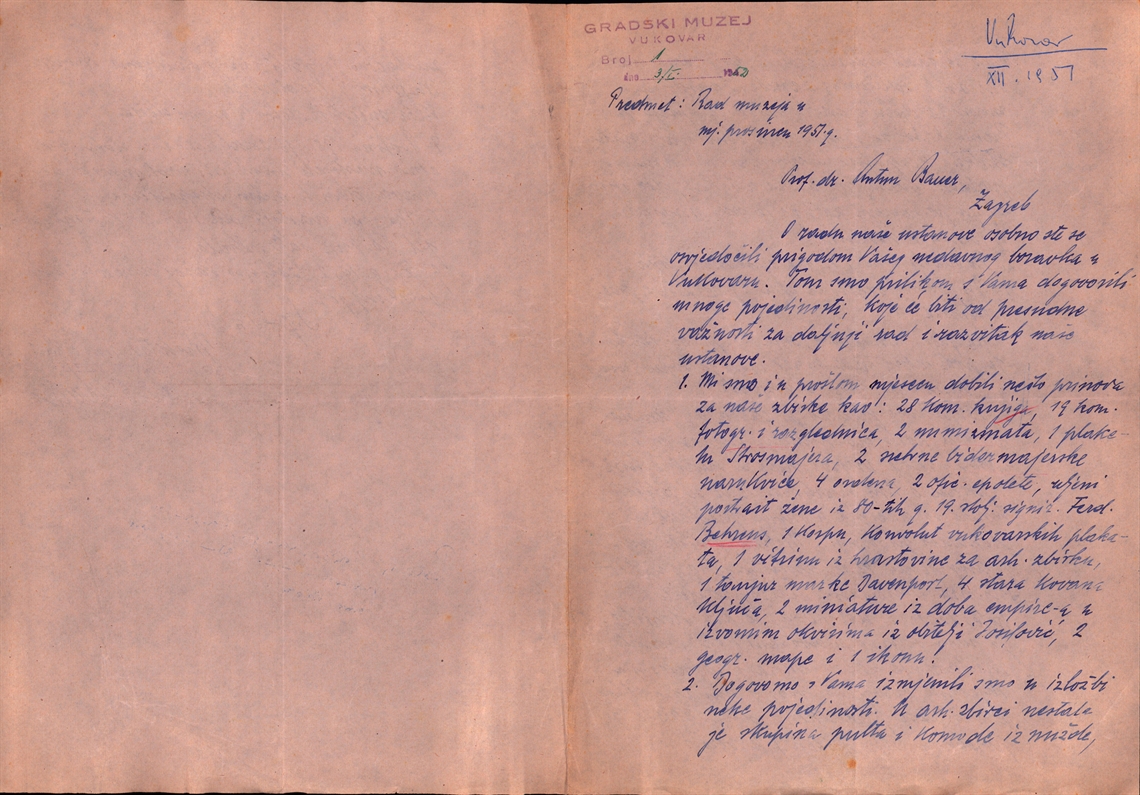 GRADSKI MUZEJ
VUKOVAR
Broj 1
dne 3/I. 1952
Vukovar
XII. 1951
Predmet: Rad muzeja u
mj. prosincu 1951. g.
Prof. dr. Antun Bauer,
Zagreb
O radu naše ustanove osobno ste se
osvjedočili prigodom Vašeg nedavnog boravka u
Vukovaru. Tom smo prilikom s Vama dogovorili
mnoge pojedinosti, koje će biti od presudne
važnosti za daljnji rad i razvitak naše
ustanove.
1. Mi smo i u prošlom mjesecu dobili nešto prinova
za naše zbirke kao: 28 kom. knjiga, 19 kom.
fotogr. i razglednica, 2 numizmata, 1 plake-
tu Strosmajera, 2 srebrne bidermajerske
narukvice, 4 ordena, 2 ofic. epolete, uljeni
portrait žene iz 80-tih g. 19. stolj. signir. Ferd.
Behrens, 1 kospu, konvolut vukovarskih plaka-
ta, 1 vitrinu iz hrastovine za arh. zbirku,
1 tanjur marke Davenport, 4 stara kovana
ključa, 2 miniature iz doba empire-a u
izvornim okvirima iz obitelji Josifović, 2
geogr. mape i 1 ikonu.
2. Dogovorno s Vama izmjenili smo u izložbi
neke pojedinosti. U arh. zbirci nestala
je skupina pulta i komode iz nužde,